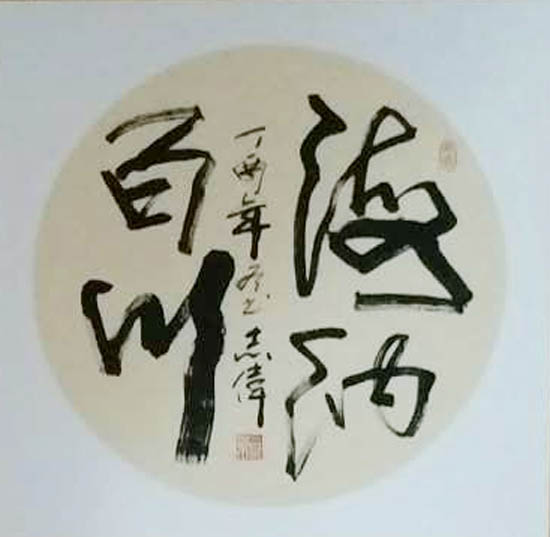 海纳
百川
丁酉年书志偉